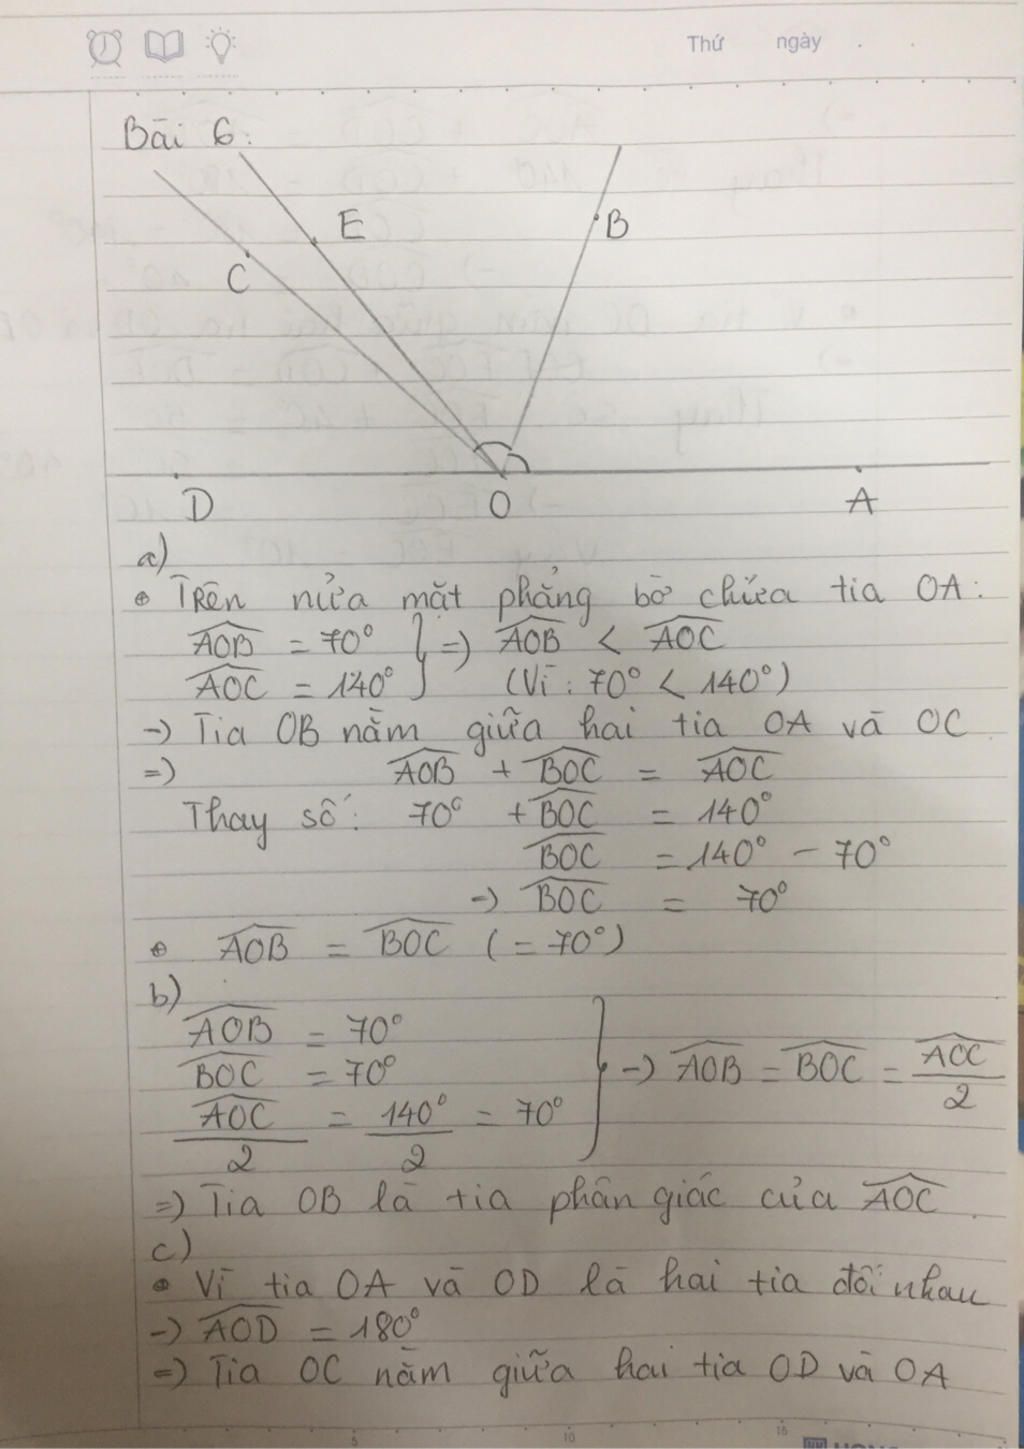 Thứ ngày
Bài 6:
E
B
C
D O A
a)
Trên nửa mặt phẳng bờ chứa tia OA:
AOB = 70° } => AOB < AOC
AOC = 140° (Vì : 70° < 140°)
-> Tia OB nằm giữa hai tia OA và OC
=> AOB + BOC = AOC
Thay số: 70° + BOC = 140°
BOC = 140° - 70°
-> BOC = 70°
AOB = BOC (= 70°)
b)
AOB = 70°
BOC = 70° } -> AOB = BOC = AOC/2
AOC/2 = 140°/2 = 70°
=> Tia OB là tia phân giác của AOC.
c)
Vì tia OA và OD là hai tia đối nhau
-> AOD = 180°
=> Tia OC nằm giữa hai tia OD và OA
5 10 15